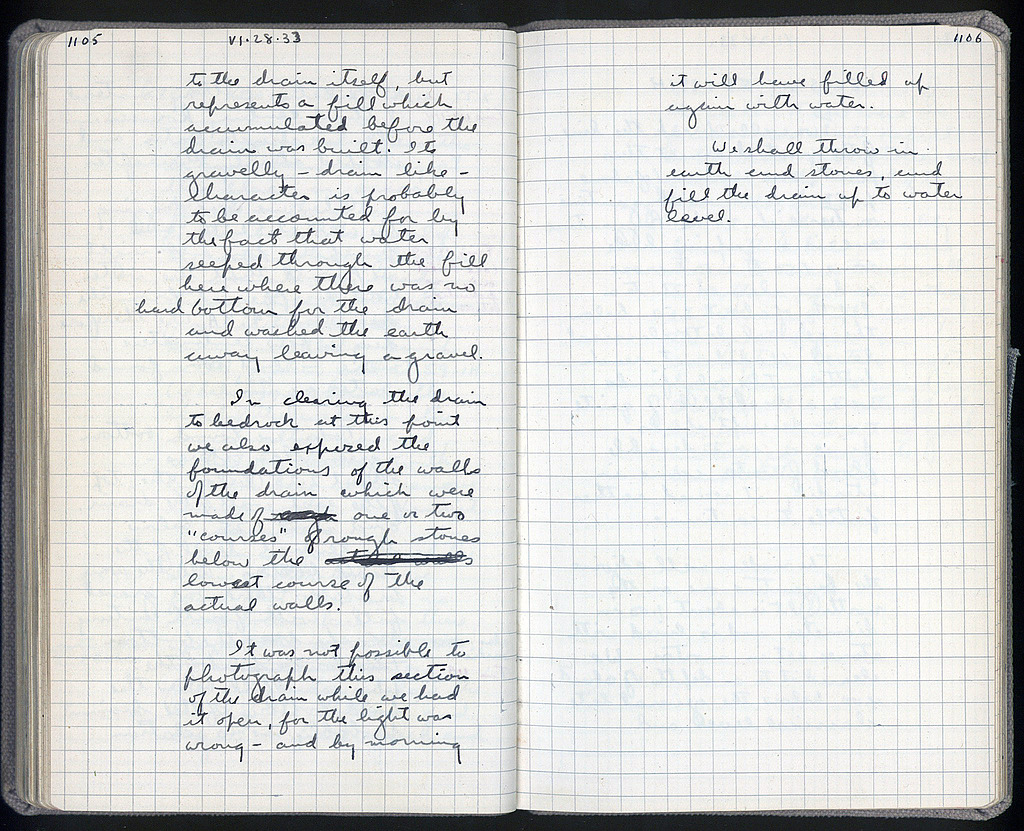 1105 VI·28·33
to the drain itself, but
represents a fill which
accumulated before the
drain was built. Its
gravelly – drain like –
character is probably
to be accounted for by
the fact that water
seeped through the fill
here where there was no
hard bottom for the drain
and washed the earth
away leaving a gravel.
In clearing the drain
to bedrock at this point
we also exposed the
foundations of the walls
of the drain which were
made of rough one or two
"courses" of rough stones
below the
lowest course of the
actual walls.
It was not possible to
photograph this section
of the drain while we had
it open, for the light was
wrong – and by morning
1106
it will have filled up
again with water.
We shall throw in
earth and stones, and
fill the drain up to water
level.